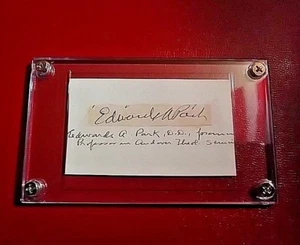 Edwards A Park
Edwards A Park, D.D., former
Professor in Andover Theol Sem